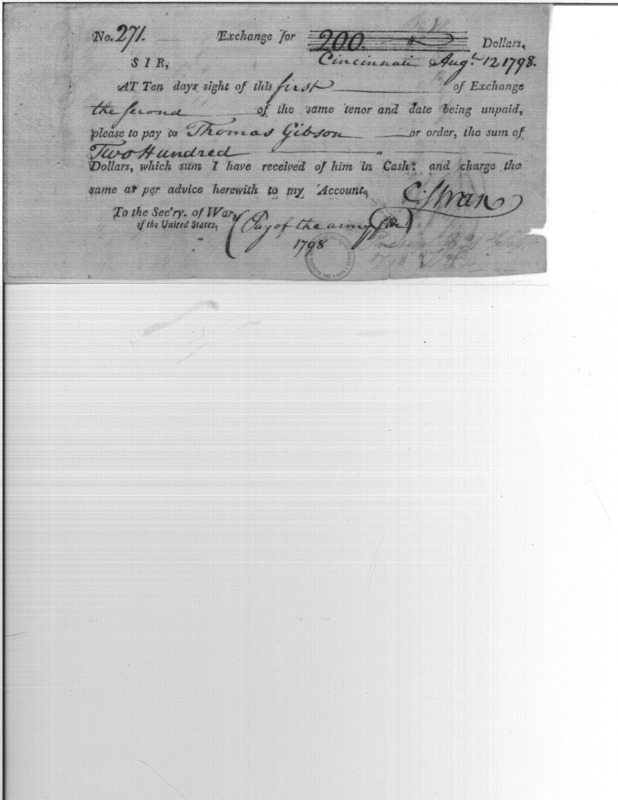 No. 271. Exchange for 200. Dollars,
SIR, Cincinnati Augt. 12 1798.
AT Ten days sight of this first of Exchange
the second of the same tenor and date being unpaid,
please to pay to Thomas Gibson or order, the sum of
Two Hundred
Dollars, which sum I have received of him in Cash: and charge the
same as per advice herewith to my Account,
C. Swan
To the Sec'ry. of War,
of the United States,
(Pay of the army &c)
1798